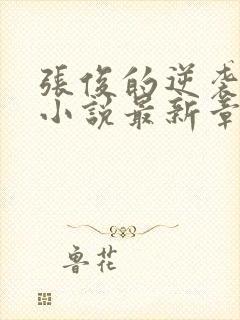 張俊的逆袭
小說最新章
魯花